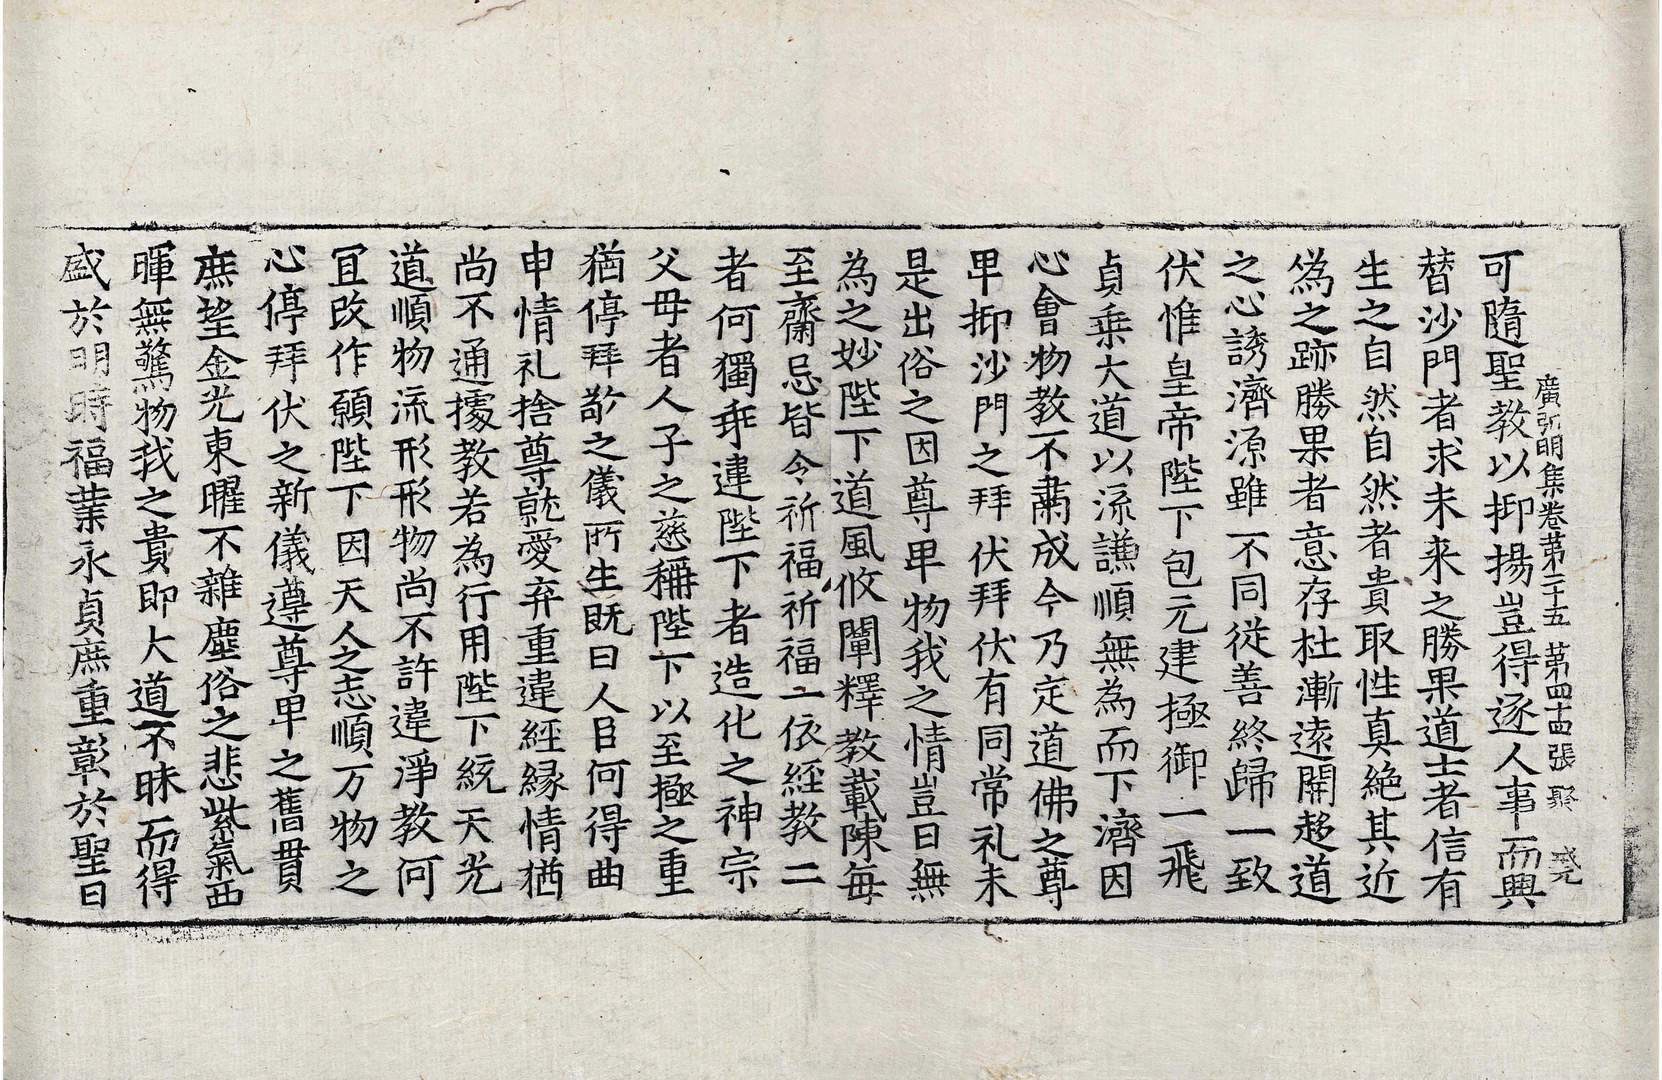 廣弘明集卷第二十五 第四十四張 聚 感元
可隨聖教以抑揚豈得逐人事而興
替沙門者求未来之勝果道士者信有
生之自然自然者貴取性真絶其近
偽之跡勝果者意存杜漸遠開趍道
之心誘濟源雖不同從善終歸一致
伏惟皇帝陛下包元建極御一飛
貞乗大道以流謙順無為而下濟因
心會物教不肅成今乃定道佛之尊
卑抑沙門之拜伏拜伏有同常礼未
是出俗之因尊卑物我之情豈曰無
為之妙陛下道風攸闡釋教載陳每
至齋忌皆令祈福祈福一依經教二
者何獨乖違陛下者造化之神宗
父母者人子之慈稱陛下以至極之重
猶停拜敬之儀所生既曰人臣何得曲
申情礼捨尊就愛弃重違經縁情猶
尚不通據教若為行用陛下統天光
道順物流形形物尚不許違淨教何
宜改作願陛下因天人之志順万物之
心停拜伏之新儀遵尊卑之舊貫
庶望金光東曜不雜塵俗之悲紫氣西
暉無驚物我之貴即大道不昧而得
盛於明時福業永貞庶重彰於聖日